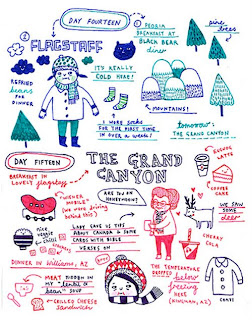 DAY FOURTEEN
① FLAGSTAFF
② PEORIA
BREAKFAST AT
BLACK BEAR
diner
pine
trees
REFRIED
beans
FOR
DINNER
IT'S REALLY
COLD HERE!
MOUNTAINS!
I WORE SOCKS
FOR THE FIRST TIME
IN OVER A WEEK!
tomorrow:
THE GRAND CANYON
DAY FIFTEEN
THE GRAND
CANYON
BREAKFAST IN
LOVELY flagstaff
WIENER
MOBILE
(we were driving
behind this)
ARE YOU ON
HONEYMOON?
EGGNOG
LATTE
COFFEE
CAKE
WE SAW
SOME
deer
CHERRY
COLA
NICE
VEGGIE
CHILI
LADY GAVE US TIPS
ABOUT CANADA & SOME
CARDS WITH BIBLE
VERSES ON
DINNER IN Williams, AZ
MEAT HIDDEN IN
MY "lentil &
bean" SOUP
GRILLED CHEESE
sandwich
THE TEMPERATURE
DROPPED below
freezing
HERE